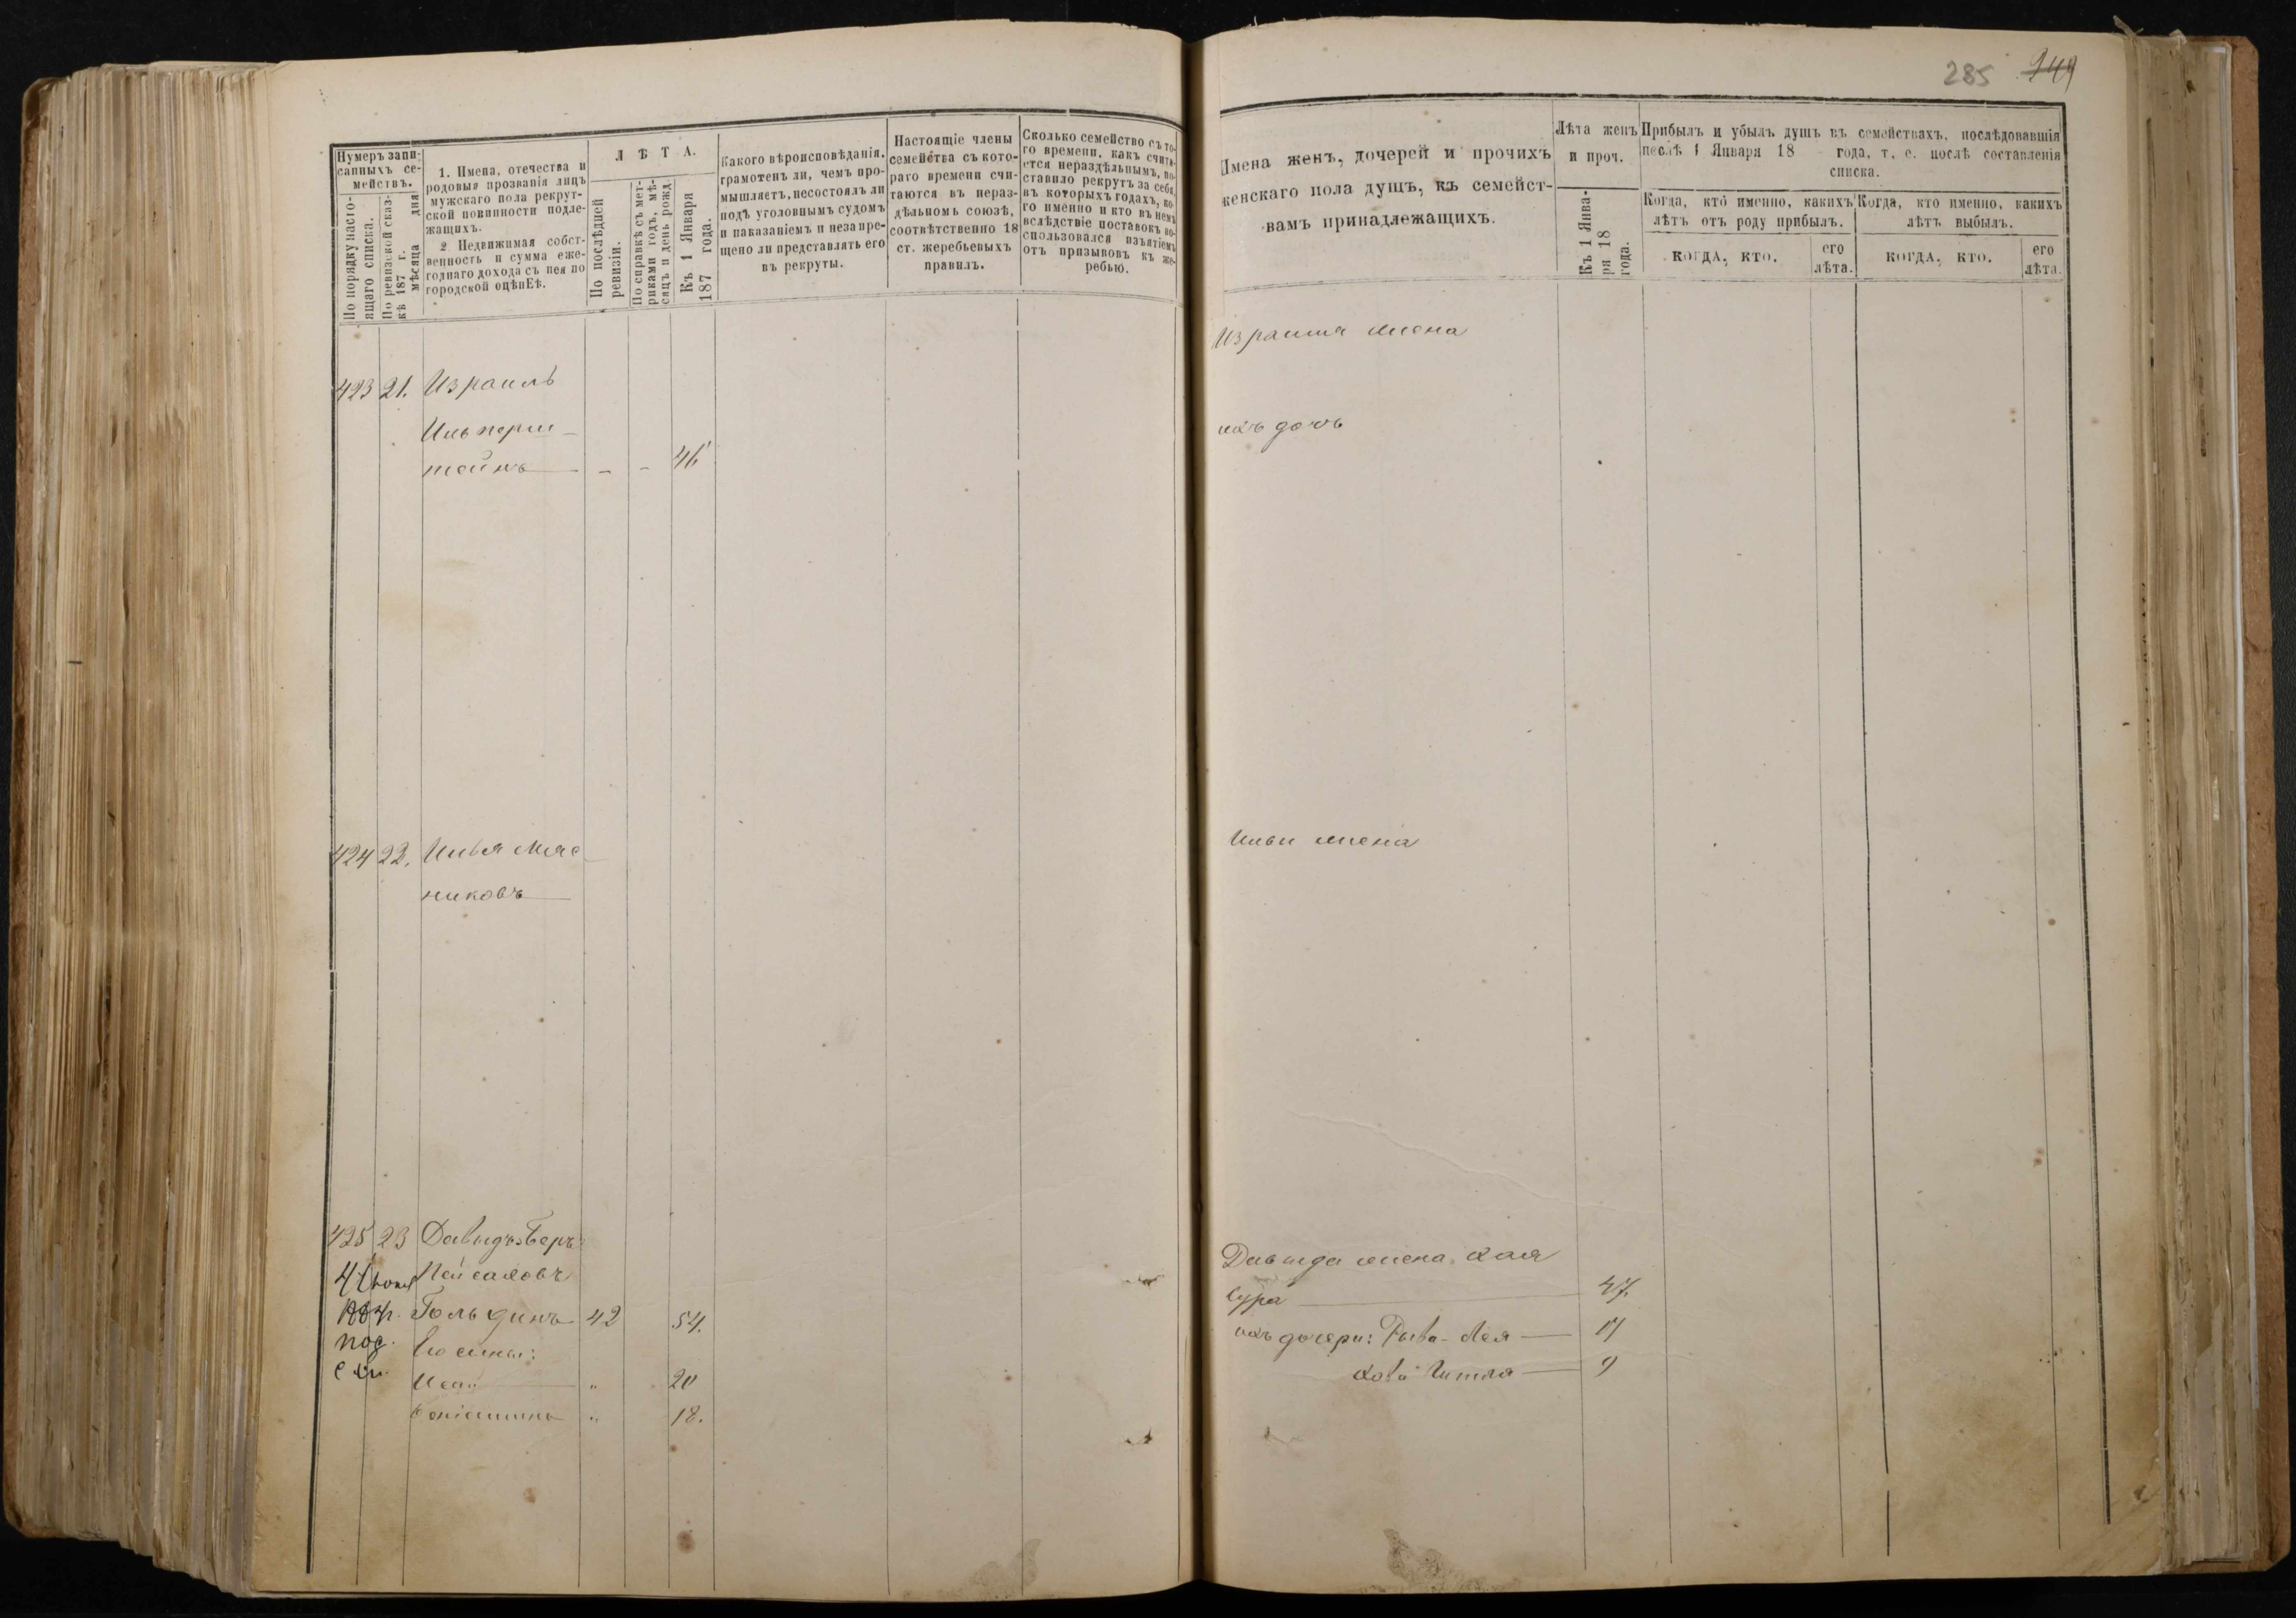 285 244
Нумеръ запи-
санныхъ се-
мействъ.
По порядку насто-
ящаго списка.
По ревизской сказ-
кѣ 187 г.
мѣсяца дня
1. Имена, отечества и
родовыя прозванія лицъ
мужскаго пола рекрут-
ской повинности подле-
жащихъ.
2 Недвижимая собст-
венность и сумма еже-
годнаго дохода съ нея по
городской оцѣнЕѣ.
Л Ѣ Т А.
По послѣдней
ревизіи.
По справкѣ съ мет-
риками годъ, мѣ-
сяцъ и день рожд.
Къ 1 Января
187 года.
Какого вѣроисповѣданія,
грамотенъ ли, чѣмъ про-
мышляетъ, несостоялъ ли
подъ уголовнымъ судомъ
и наказаніемъ и незапре-
щено ли представлять его
въ рекруты.
Настоящіе члены
семейства съ кото-
раго времени счи-
таются въ нераз-
дѣльномъ союзѣ,
соотвѣтственно 18
ст. жеребьевыхъ
правилъ.
Сколько семейство съ то-
го времени, какъ счита-
ется нераздѣльнымъ, по-
ставило рекрутъ за себя,
въ которыхъ годахъ, ко-
го именно и кто въ немъ
вслѣдствіе поставокъ во-
спользовался изъятіемъ
отъ призывовъ къ же-
ребью.
Имена женъ, дочерей и прочихъ
женскаго пола душъ, къ семейст-
вамъ принадлежащихъ.
Лѣта женъ
и проч.
Къ 1 Янва-
ря 18
года.
Прибылъ и убылъ душъ въ семействахъ, послѣдовавшія
послѣ 1 Января 18 года, т. е. послѣ составленія
списка.
Когда, кто именно, какихъ
лѣтъ отъ роду прибылъ.
КОГДА, КТО.
его
лѣта.
Когда, кто именно, какихъ
лѣтъ выбылъ.
КОГДА, КТО.
его
лѣта.
423 21. Израиль
Ильперш-
тейнъ - - 46
Израиля жена
ихъ дочь
424 22. Илья Мяс-
никовъ
Ильи жена
425 23 Давидъ Беръ
Пейсаховъ
Гольдинъ 42 54.
Его сыны:
Исай " 20
Беніаминъ " 18.
Давида жена Хая
Сура 47.
ихъ дочери: Рыва-Лея 17
Хава Гитля 9